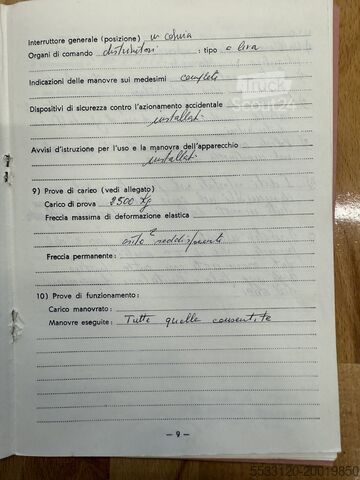 Interruttore generale (posizione) in cabina
Organi di comando distributori : tipo a leva
Indicazioni delle manovre sui medesimi complete
Dispositivi di sicurezza contro l'azionamento accidentale
installati
Avvisi d'istruzione per l'uso e la manovra dell'apparecchio
installati
9) Prove di carico (vedi allegato)
Carico di prova 2500 Kg
Freccia massima di deformazione elastica
esito soddisfacente
Freccia permanente:
10) Prove di funzionamento:
Carico manovrato:
Manovre eseguite: Tutte quelle consentite
— 9 —
Truck
Scout24
5533120-20019850